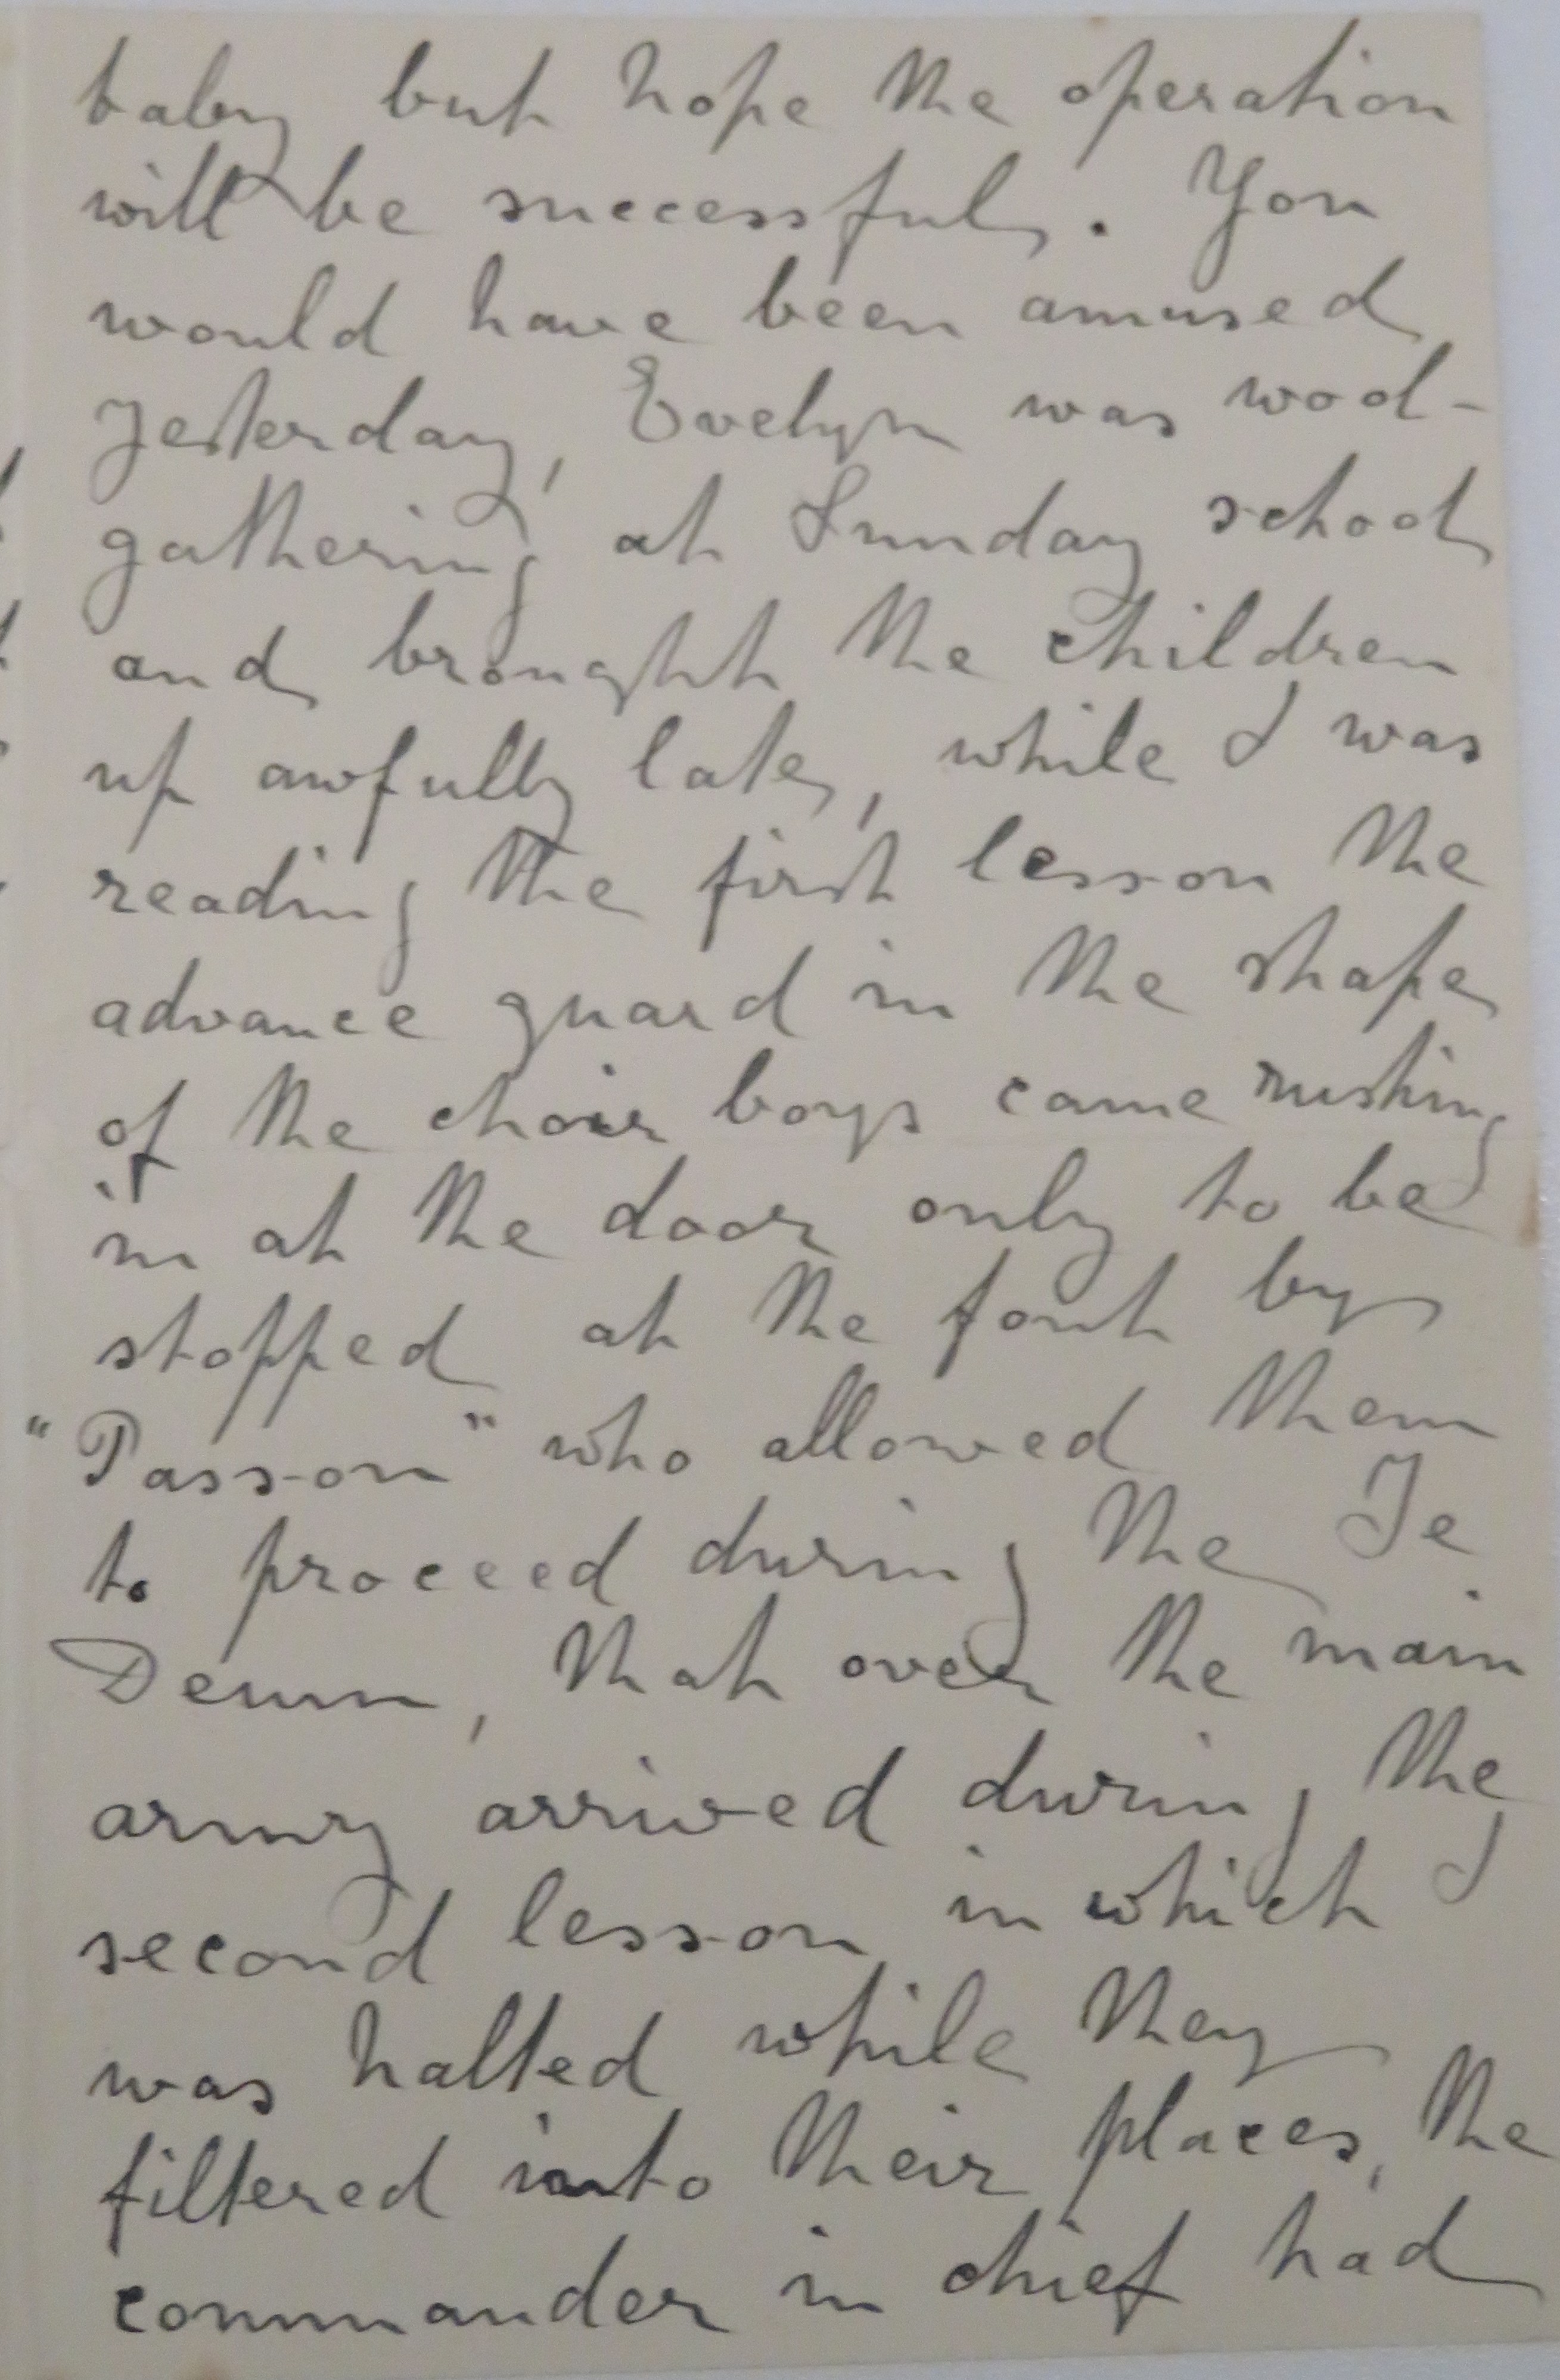 baby but hope the operation
will be successful. You
would have been amused
yesterday, Evelyn was wool-
gathering at Sunday school
and brought the children
up awfully late, while I was
reading the first lesson the
advance guard in the shape
of the choir boys came rushing
in at the door only to be
stopped at the font by
"Passon" who allowed them
to proceed during the Te
Deum, that over the main
army arrived during the
second lesson in which I
was halted while they
filtered into their places, the
commander in chief had